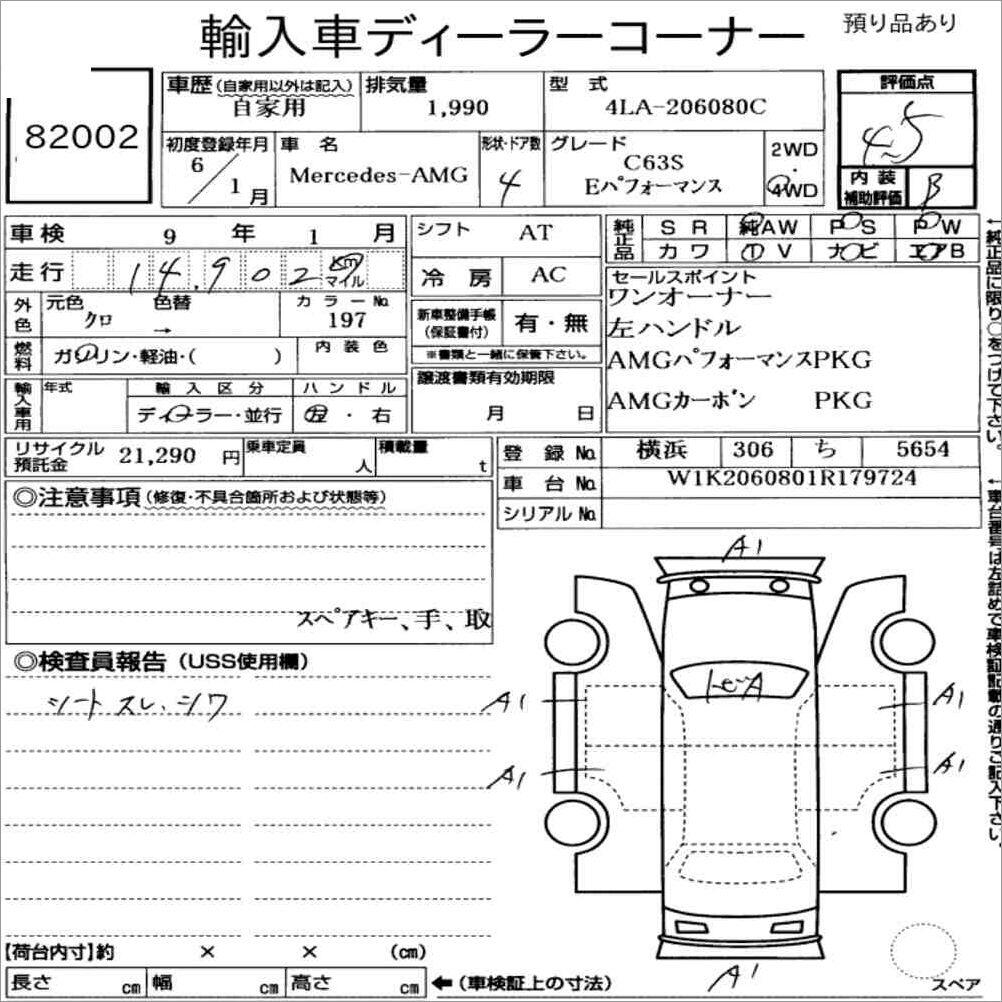 輸入車ディーラーコーナー 預り品あり
82002
車歴 (自家用以外は記入) 排気量 型式 評価点
自家用 1,990 4LA-206080C 4.5
初度登録年月 車名 形状・ドア数 グレード 2WD・4WD
6/1月 Mercedes-AMG 4 C63S
Eパフォーマンス
内装補助評価 B
車検 9年 1月 シフト AT 純正品 SR 純AW PS PW
カワ TV ナビ エアB
走行 14,902 km マイル 冷房 AC
セールスポイント
ワンオーナー
左ハンドル
AMGパフォーマンスPKG
AMGカーボン PKG
外色 元色 色替 カラーNo.
クロ → 197
新車整備手帳(保証書付) 有・無
※書類と一緒に保管下さい。
燃料 ガソリン・軽油・( ) 内装色
譲渡書類有効期限
月 日
輸入車用 年式 輸入区分 ハンドル
ディーラー・並行 左・右
リサイクル預託金 21,290円 乗車定員 人 積載量 t
登録No. 横浜 306 ち 5654
車台No. W1K2060801R179724
シリアルNo.
◎注意事項(修復・不具合箇所および状態等)
スペアキー、手、取
◎検査員報告(USS使用欄)
シートスレ、シワ
A1
A1
A1
A1
A1
A1
【荷台内寸】約 × × (cm)
長さ cm 幅 cm 高さ cm ←(車検証上の寸法)
スペア
←純正品に限り○をつけて下さい。
←車台番号は左詰めで車検証記載の通りご記入下さい。